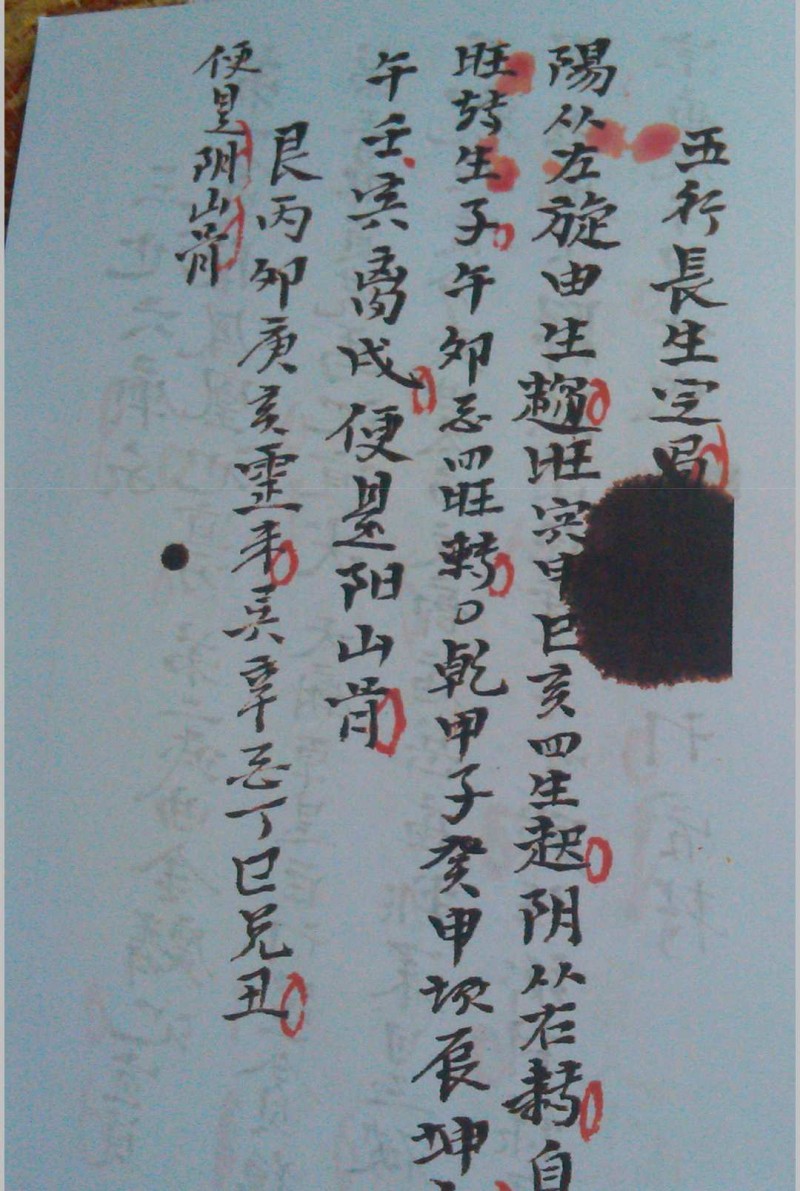 五行長生定局
陽从左旋由生趨旺寅申巳亥四生起阴从右轉自
旺转生子午卯忌四旺轉○乾甲子癸申坎辰坤
午壬寅离戌便是阳山骨
艮丙卯庚亥震未巽辛忌丁巳兑丑
便是阴山骨